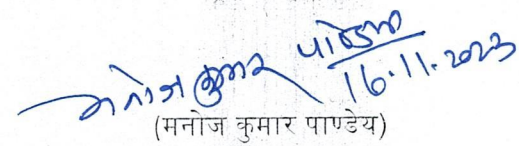 मनोज कुमार पाण्डेय
16.11.2023
(मनोज कुमार पाण्डेय)